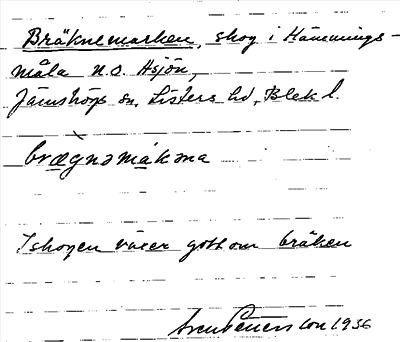 Bräknemarken, skog i Hämmings-
måla n.o. Hsjön,
Jämshögs sn, Listers hd, Blek l.
brægnəmȧkəna
I skogen växer gott om bräken
1936